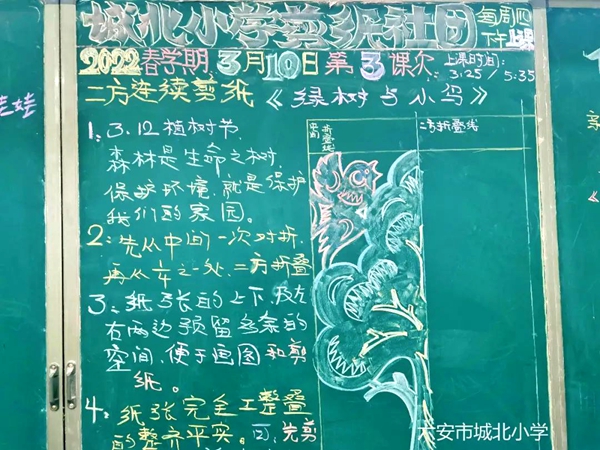 城北小学剪纸社团
每周四
下午上课
2022春学期3月10日第3课次
上课时间:
3:25/5:35
二方连续剪纸《绿树与小鸟》
1:3.12植树节,
森林是生命之树,
保护环境,就是保护
我们的家园。
2:先从中间一次对折,
再从1/4之处,二方折叠
3:纸张的上下及左
右两边预留多余的
空间,便于画图和剪
纸。
4:纸张完全工整叠
的整齐平实。
先剪
二方折叠线
娃娃
六安市城北小学